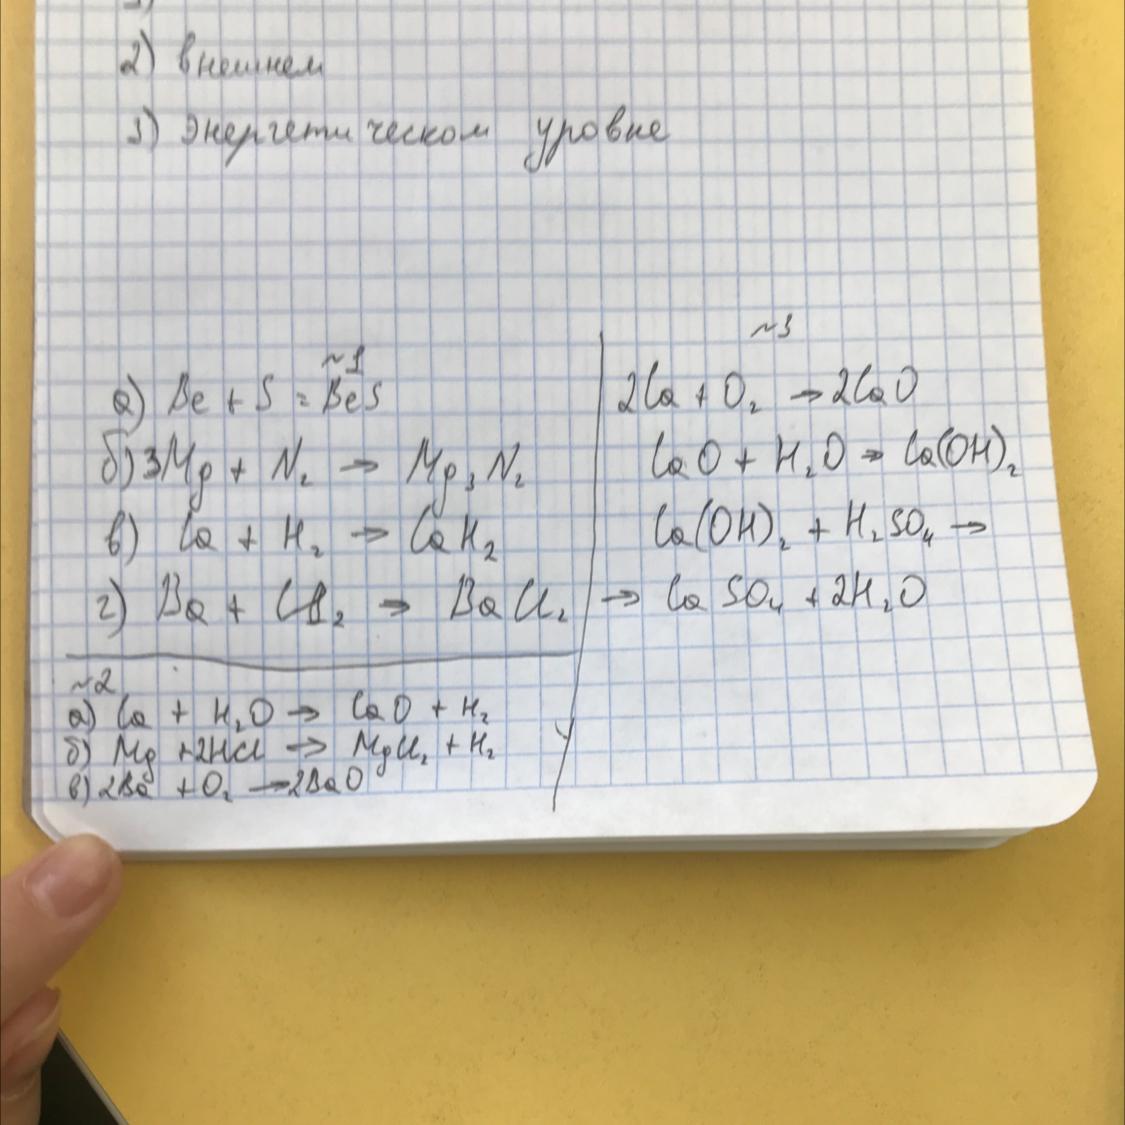 2) внешнем
3) энергетическом уровне
~1
а) Be + S = BeS
б) 3Mg + N₂ → Mg₃N₂
в) Ca + H₂ → CaH₂
г) Ba + Cl₂ → BaCl₂
~2
а) Ca + H₂O → CaO + H₂
б) Mg + 2HCl → MgCl₂ + H₂
в) 2Ba + O₂ → 2BaO
~3
2Ca + O₂ → 2CaO
CaO + H₂O → Ca(OH)₂
Ca(OH)₂ + H₂SO₄ →
→ CaSO₄ + 2H₂O